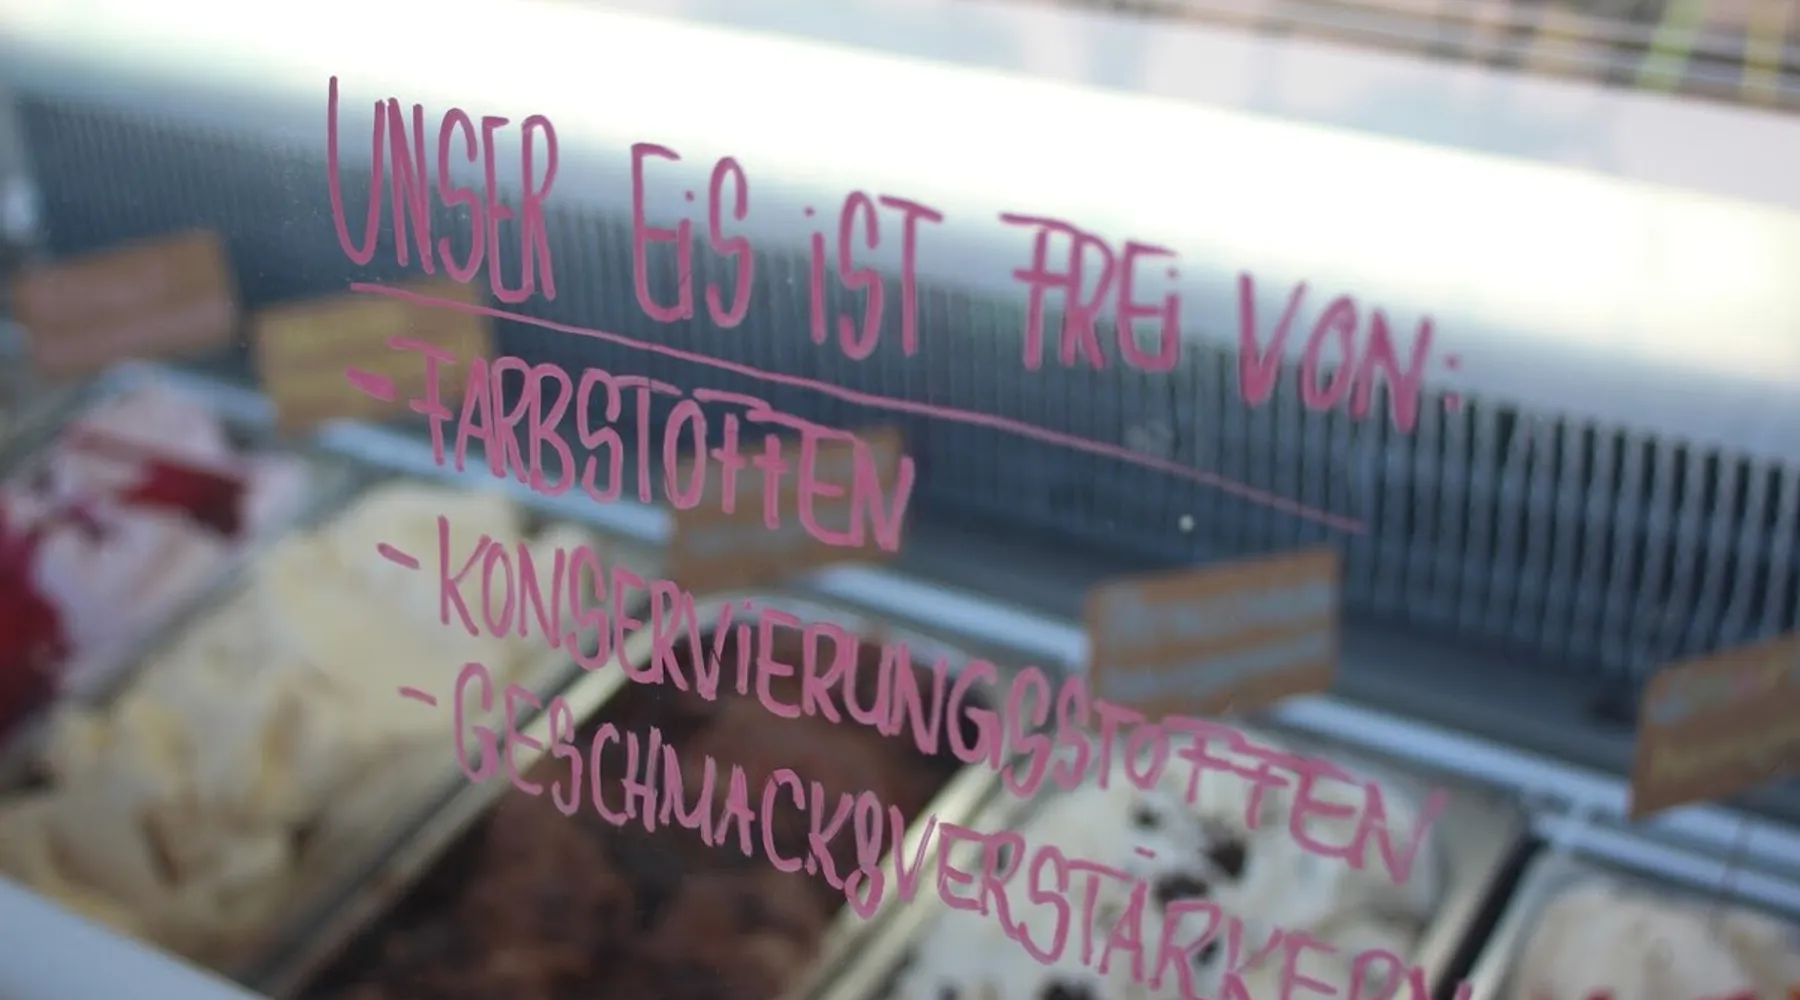 UNSER EiS iST FREi VON:
- FARBSTOFFEN
- KONSERViERUNGSSTOFFEN
- GESCHMACKSVERSTÄRKERN